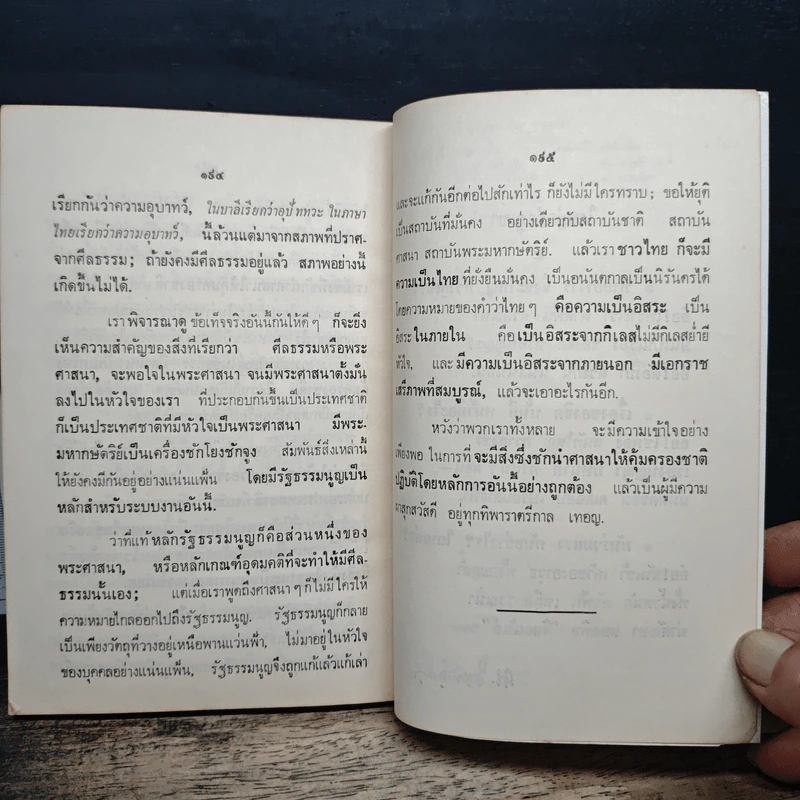 ๑๙๔
เรียกกันว่าความอุบาทว์, ในบาลีเรียกว่าอุปัททวะ ในภาษา
ไทยเรียกว่าความอุบาทว์, นี้ล้วนแต่มาจากสภาพที่ปราศ-
จากศีลธรรม; ถ้ายังคงมีศีลธรรมอยู่แล้ว สภาพอย่างนี้
เกิดขึ้นไม่ได้.
เราพิจารณาดู ข้อเท็จจริงอันนี้กันให้ดี ๆ ก็จะยิ่ง
เห็นความสำคัญของสิ่งที่เรียกว่า ศีลธรรมหรือพระ
ศาสนา, จะพอใจในพระศาสนา จนมีพระศาสนาตั้งมั่น
ลงไปในหัวใจของเรา ที่ประกอบกันขึ้นเป็นประเทศชาติ
ก็เป็นประเทศชาติที่มีหัวใจเป็นพระศาสนา มีพระ-
มหากษัตริย์เป็นเครื่องชักโยงชักจูง สัมพันธ์สิ่งเหล่านี้
ให้ยังคงมีกันอยู่อย่างแน่นแฟ้น โดยมีรัฐธรรมนูญเป็น
หลักสำหรับระบบงานอันนี้.
ว่าที่แท้ หลักรัฐธรรมนูญก็คือส่วนหนึ่งของ
พระศาสนา, หรือหลักเกณฑ์อุดมคติที่จะทำให้มีศีล-
ธรรมนั้นเอง; แต่เมื่อเราพูดถึงศาสนา ๆ ก็ไม่มีใครให้
ความหมายไกลออกไปถึงรัฐธรรมนูญ. รัฐธรรมนูญก็กลาย
เป็นเพียงวัตถุที่วางอยู่เหนือพานแว่นฟ้า, ไม่มาอยู่ในหัวใจ
ของบุคคลอย่างแน่นแฟ้น, รัฐธรรมนูญจึงถูกแก้แล้วแก้เล่า
๑๙๕
และจะแก้กันอีกต่อไปสักเท่าไร ก็ยังไม่มีใครทราบ; ขอให้ยุติ
เป็นสถาบันที่มั่นคง อย่างเดียวกับสถาบันชาติ สถาบัน
ศาสนา สถาบันพระมหากษัตริย์. แล้วเรา ชาวไทย ก็จะมี
ความเป็นไทย ที่ยั่งยืนมั่นคง เป็นอนันตกาลเป็นนิรันดรได้
โดยความหมายของคำว่าไทย ๆ คือความเป็นอิสระ เป็น
อิสระในภายใน คือเป็นอิสระจากกิเลส ไม่มีกิเลสย่ำยี
หัวใจ, และมีความเป็นอิสระจากภายนอก มีเอกราช
เสรีภาพที่สมบูรณ์, แล้วจะเอาอะไรกันอีก.
หวังว่าพวกเราทั้งหลาย จะมีความเข้าใจอย่าง
เพียงพอ ในการที่ จะมีสิ่งซึ่งชักนำศาสนาให้คุ้มครองชาติ
ปฏิบัติโดยหลักการอันนี้อย่างถูกต้อง แล้วเป็นผู้มีความ
ผาสุกสวัสดี อยู่ทุกทิพาราตรีกาล เทอญ.